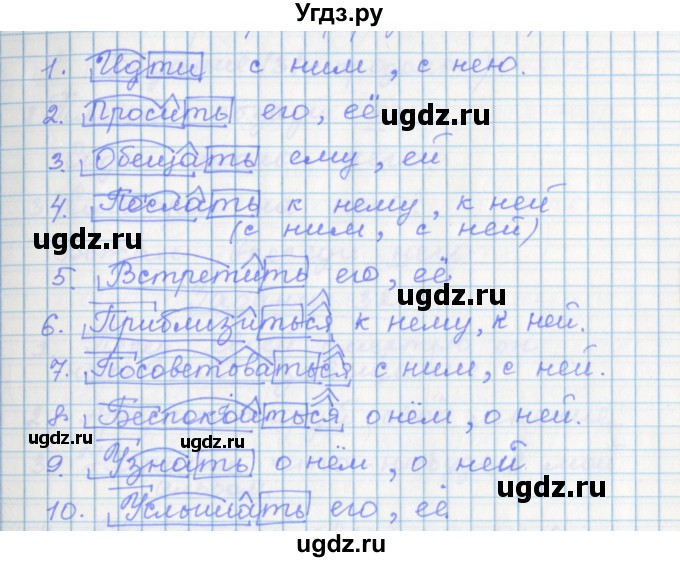 Угдз.ру
1. Идти с ним, с нею.
2. Просить его, её
ugdz.ru
3. Обещать ему, ей
4. Послать к нему, к ней
(с ним, с ней)
ugdz.ru
5. Встретить его, её
ugdz.ru
6. Приблизиться к нему, к ней.
7. Посоветоваться с ним, с ней.
8. Беспокоиться о нём, о ней.
ugdz.ru ugdz.ru
9. Узнать о нём, о ней
ugdz.ru
10. Услышать его, её
ugdz.ru